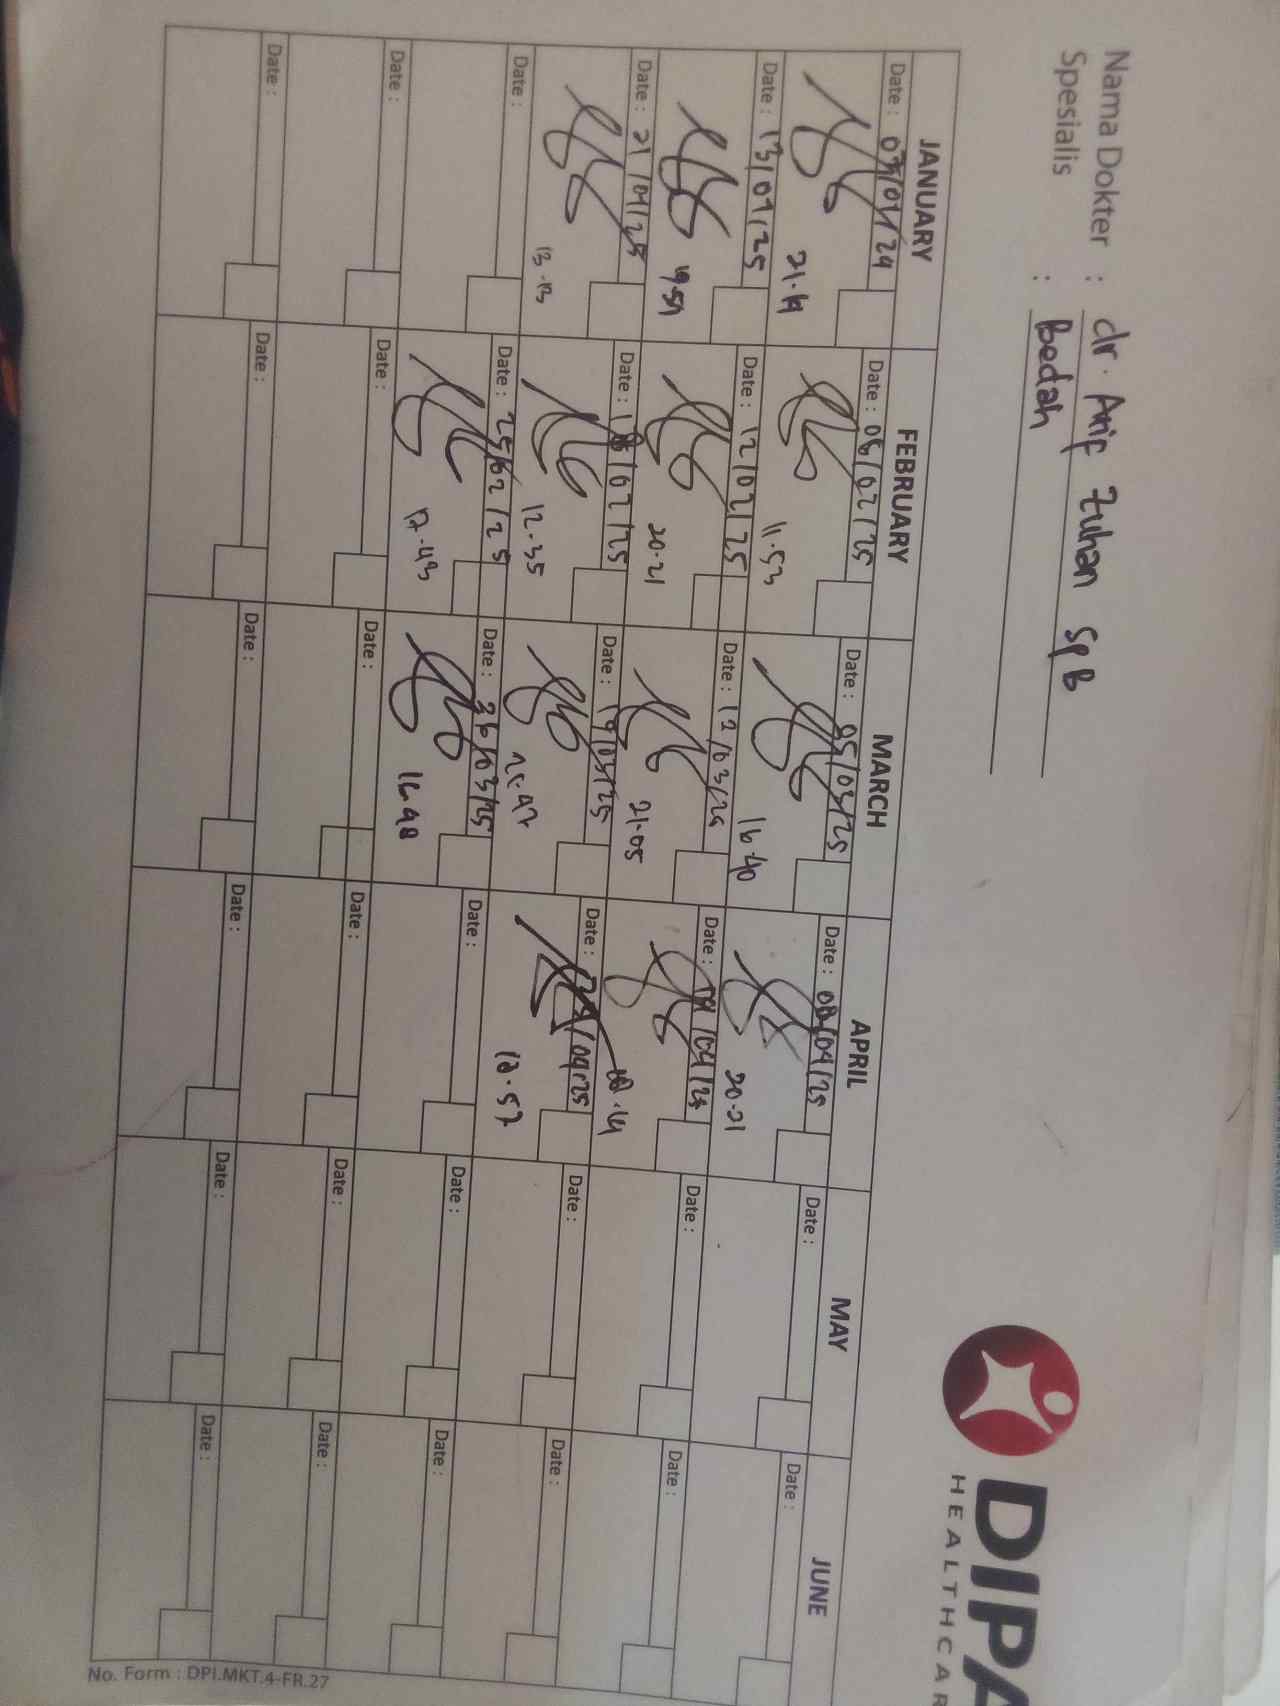 Nama Dokter : dr. Arif Zuhan SpB
Spesialis : Bedah
DIPA
HEALTHCAR
JANUARY FEBRUARY MARCH APRIL MAY JUNE
Date : /01/24 Date : 06/02/25 Date : 05/03/25 Date : /04/25 Date : Date :
21.19 11.53 16.40 20.21
Date : 13/01/25 Date : 12/02/25 Date : 12/03/25 Date : /04/25 Date : Date :
19.59 20.21 21.05
Date : 21/01/25 Date : 18/02/25 Date : 19/03/25 Date : /04/25 Date : Date :
13.13 12.35 12.57
Date : Date : 25/02/25 Date : 26/03/25 Date : Date : Date :
17.43 16.48
Date : Date : Date : Date : Date : Date :
Date : Date : Date : Date : Date : Date :
No. Form : DPI.MKT.4-FR.27